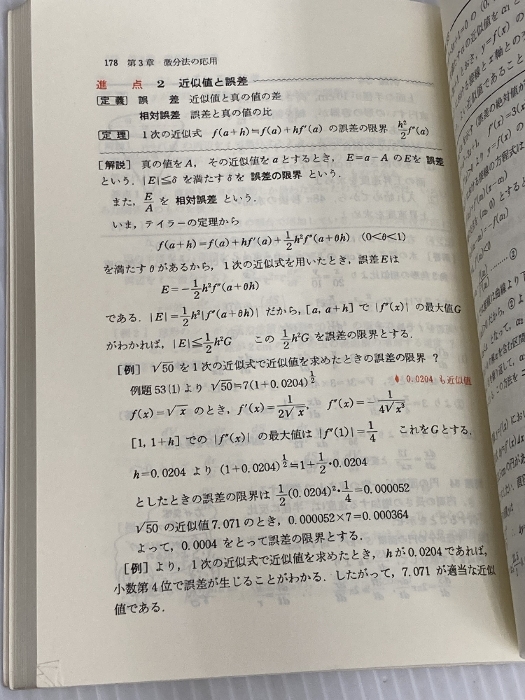 178 第3章 微分法の応用
進 点 2 近似値と誤差
[定義] 誤 差 近似値と真の値の差
相対誤差 誤差と真の値の比
[定理] 1次の近似式 f(a+h)≒f(a)+hf′(a) の誤差の限界 h²/2 f″(a)
[解説] 真の値をA, その近似値をaとするとき, E=a−A のEを 誤差
という. |E|≦δ を満たすδを 誤差の限界 という.
また, E/A を 相対誤差 という.
いま, テイラーの定理から
f(a+h)=f(a)+hf′(a)+1/2 h²f″(a+θh) (0<θ<1)
を満たすθがあるから, 1次の近似式を用いたとき, 誤差Eは
E=−1/2 h²f″(a+θh)
である. |E|=1/2 h²|f″(a+θh)| だから, [a, a+h] で |f″(x)| の最大値G
がわかれば, |E|≦1/2 h²G この 1/2 h²G を誤差の限界とする.
[例] √50 を1次の近似式で近似値を求めたときの誤差の限界 ?
例題 53(1) より √50≒7(1+0.0204)^(1/2) 0.0204 も近似値
f(x)=√x のとき, f′(x)=1/(2√x), f″(x)=−1/(4√x³)
[1, 1+h] での |f″(x)| の最大値は |f″(1)|=1/4 これをGとする.
h=0.0204 より (1+0.0204)^(1/2)≒1+1/2・0.0204
としたときの誤差の限界は 1/2(0.0204)²・1/4=0.000052
√50 の近似値 7.071 のとき, 0.000052×7=0.000364
よって, 0.0004 をとって誤差の限界とする.
[例] より, 1次の近似式で近似値を求めたとき, hが0.0204であれば,
小数第4位で誤差が生じることがわかる. したがって, 7.071 が適当な近似
値である.